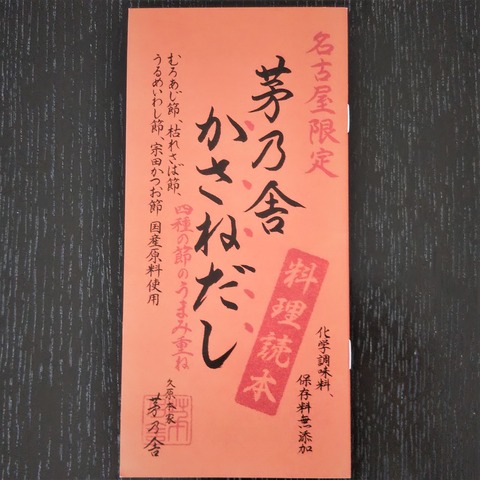 名古屋限定
茅乃舎
かさねだし
料理読本
化学調味料、
保存料無添加
むろあじ節、枯れさば節、
うるめいわし節、宗田かつお節 国産原料使用
四種の節のうまみ重ね
久原本家
茅乃舎